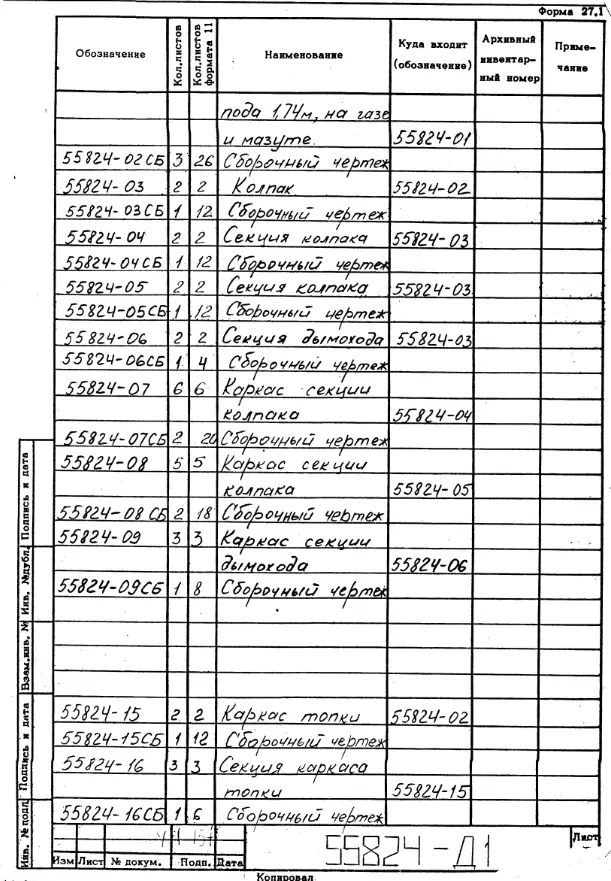 Форма 27.1
Обозначение Кол.листов Кол.листов формата 11 Наименование Куда входит (обозначение) Архивный инвентар-ный номер Приме-чание
пода 1,74м, на газе
и мазуте. 55824-01
55824-02СБ 3 26 Сборочный чертеж
55824-03 2 2 Колпак 55824-02
55824-03СБ 1 12 Сборочный чертеж
55824-04 2 2 Секция колпака 55824-03
55824-04СБ 1 12 Сборочный чертеж
55824-05 2 2 Секция колпака 55824-03
55824-05СБ 1 12 Сборочный чертеж
55824-06 2 2 Секция дымохода 55824-03
55824-06СБ 1 4 Сборочный чертеж
55824-07 6 6 Каркас секции
колпака 55824-04
55824-07СБ 2 20 Сборочный чертеж
55824-08 5 5 Каркас секции
колпака 55824-05
55824-08 СБ 2 18 Сборочный чертеж
55824-09 3 3 Каркас секции
дымохода 55824-06
55824-09СБ 1 8 Сборочный чертеж
55824-15 2 2 Каркас топки 55824-02
55824-15СБ 1 12 Сборочный чертеж
55824-16 3 3 Секция каркаса
топки 55824-15
55824-16СБ 1 6 Сборочный чертеж
Инв. № подл. Подпись и дата Взам.инв. № Инв. №дубл. Подпись и дата
55824-Д1 Лист
Изм Лист № докум. Подп. Дата
Копировал